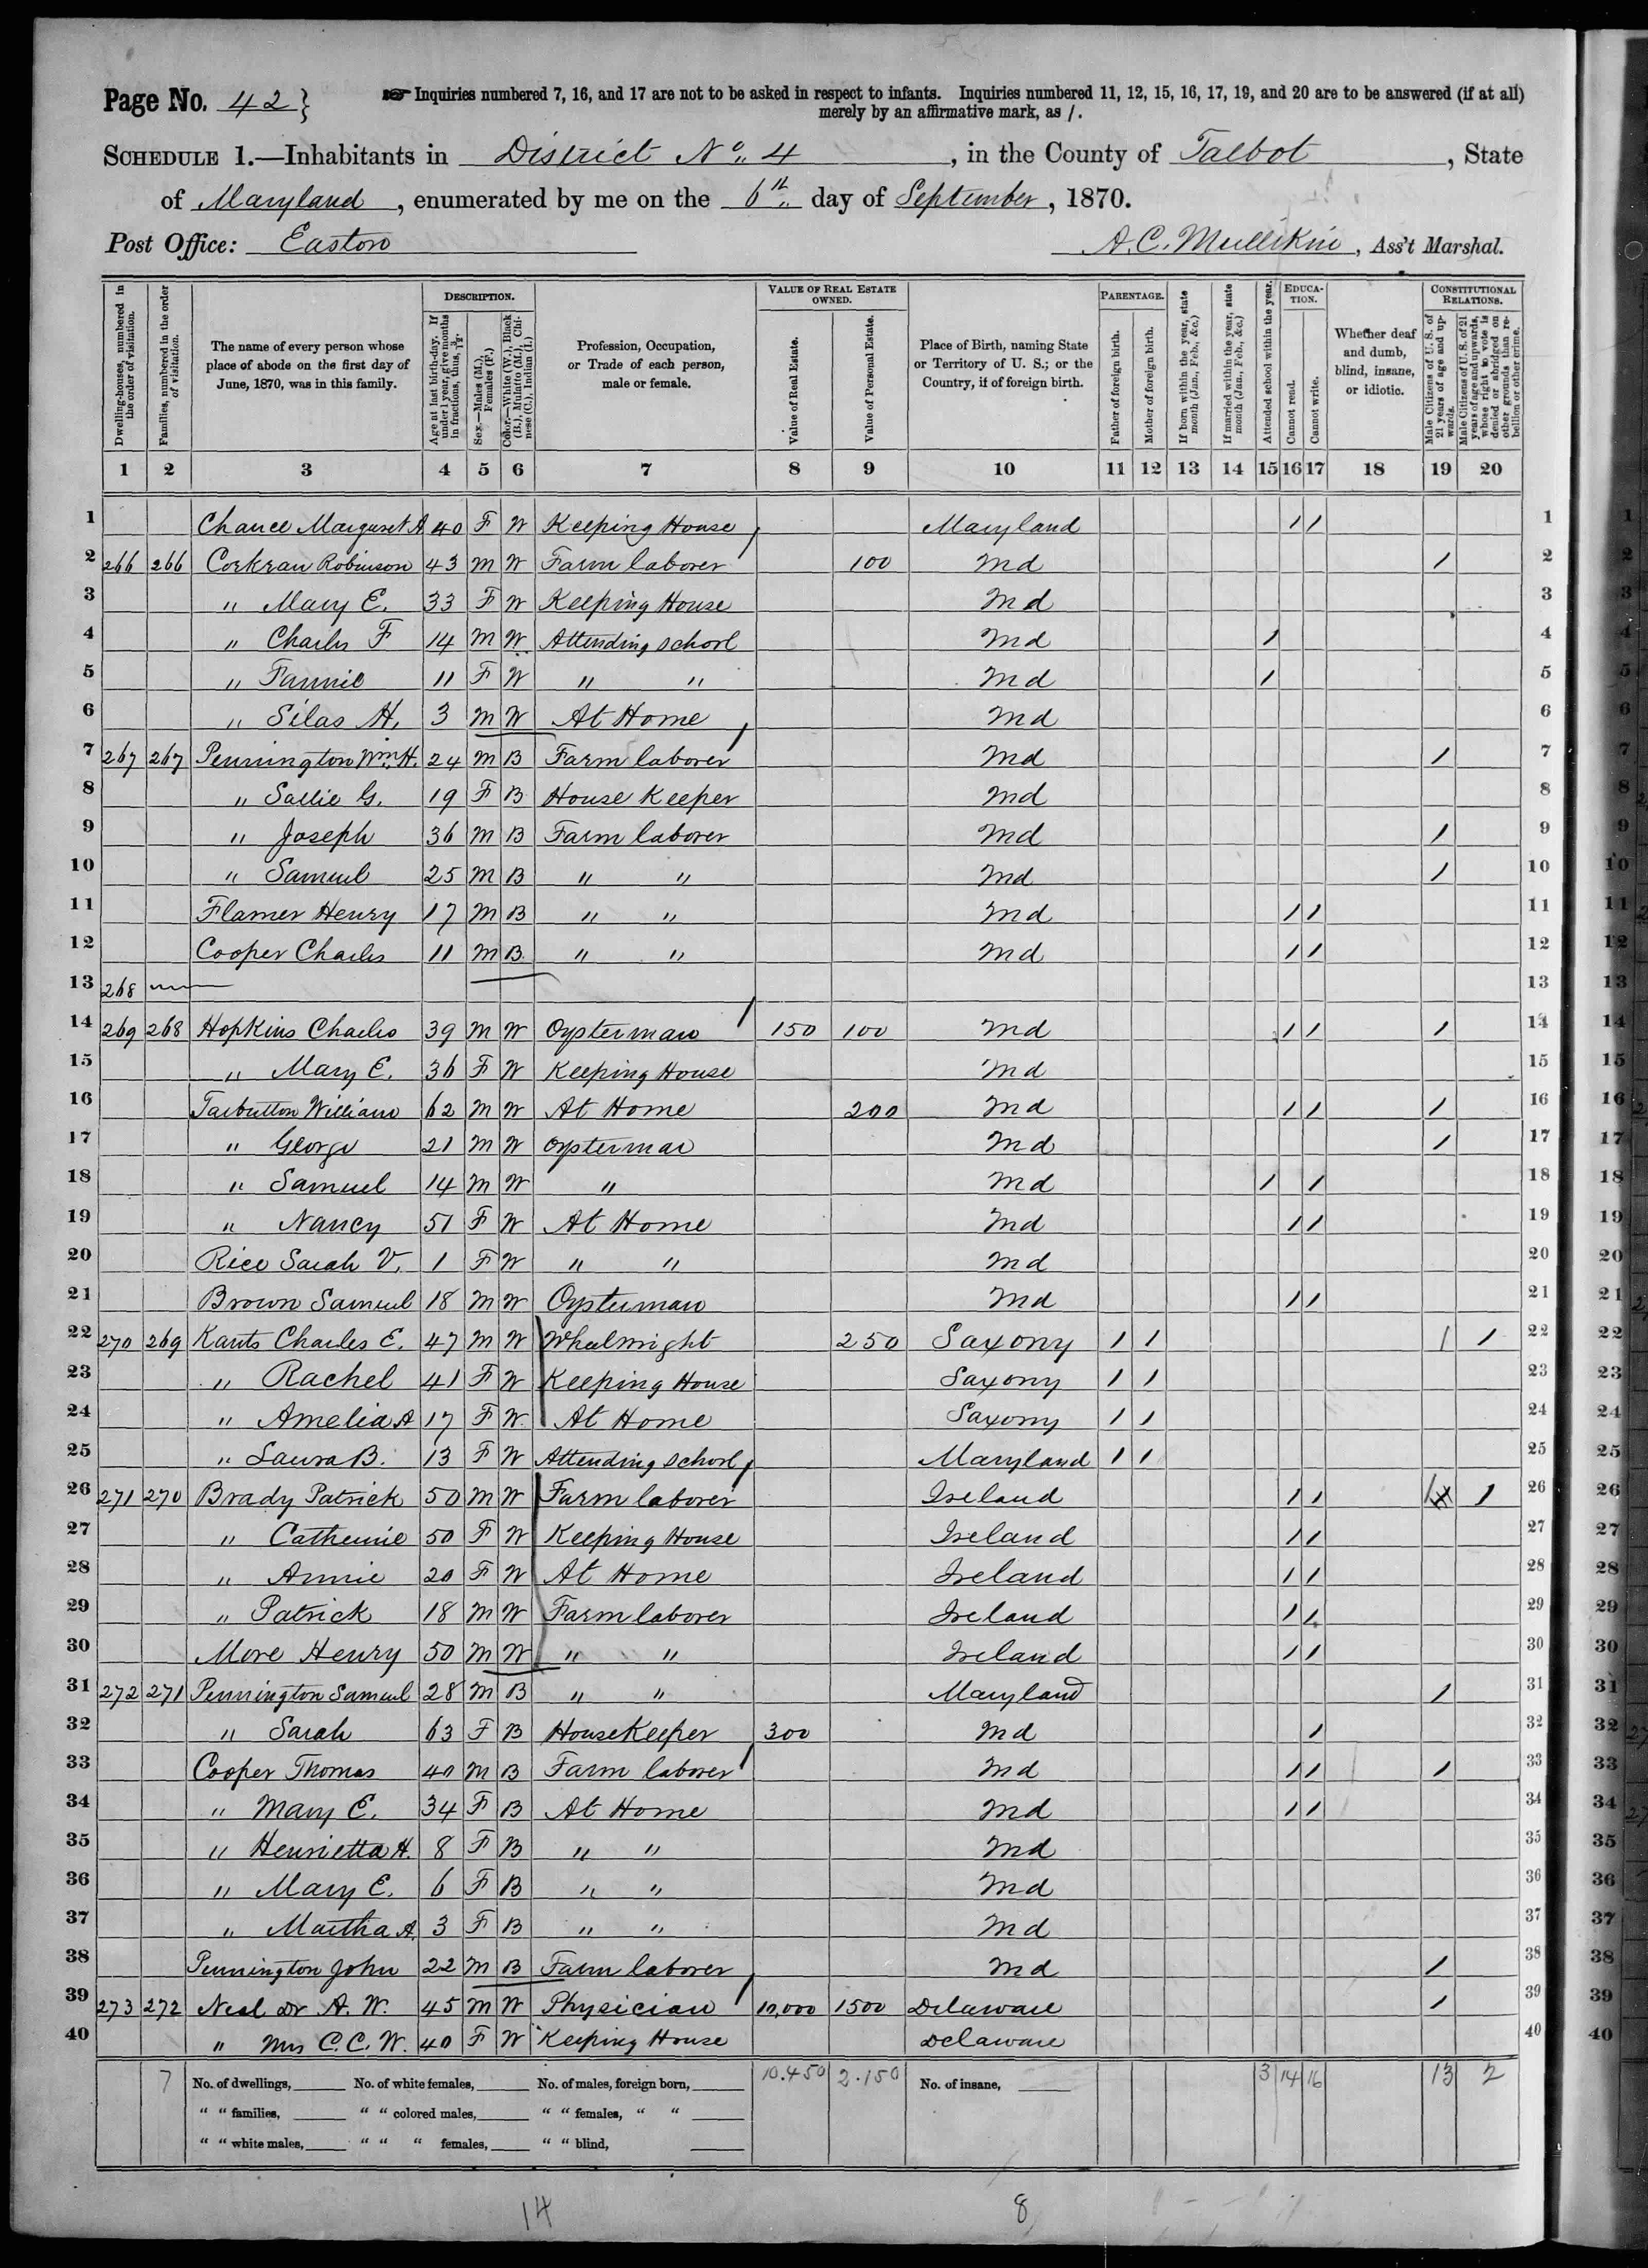 Page No. 42}
☞ Inquiries numbered 7, 16, and 17 are not to be asked in respect to infants. Inquiries numbered 11, 12, 15, 16, 17, 19, and 20 are to be answered (if at all)
merely by an affirmative mark, as /.
SCHEDULE 1.—Inhabitants in District No. 4, in the County of Talbot, State
of Maryland, enumerated by me on the 6th day of September, 1870.
Post Office: Easton
A. C. Mullikin, Ass't Marshal.
Dwelling-houses, numbered in the order of visitation.
Families, numbered in the order of visitation.
The name of every person whose place of abode on the first day of June, 1870, was in this family.
DESCRIPTION.
Age at last birth-day. If under 1 year, give months in fractions, thus, 3/12.
Sex.—Males (M.), Females (F.)
Color.—White (W.), Black (B.), Mulatto (M.), Chinese (C.), Indian (I.)
Profession, Occupation, or Trade of each person, male or female.
VALUE OF REAL ESTATE OWNED.
Value of Real Estate.
Value of Personal Estate.
Place of Birth, naming State or Territory of U. S.; or the Country, if of foreign birth.
PARENTAGE.
Father of foreign birth.
Mother of foreign birth.
If born within the year, state month (Jan., Feb., &c.)
If married within the year, state month (Jan., Feb., &c.)
Attended school within the year.
EDUCATION.
Cannot read.
Cannot write.
Whether deaf and dumb, blind, insane, or idiotic.
CONSTITUTIONAL RELATIONS.
Male Citizens of U. S. of 21 years of age and upwards.
Male Citizens of U. S. of 21 years of age and upwards, whose right to vote is denied or abridged on other grounds than rebellion or other crime.
1 2 3 4 5 6 7 8 9 10 11 12 13 14 15 16 17 18 19 20
1 Chance Margaret A 40 F W Keeping House Maryland / / 1
2 266 266 Corkran Robinson 43 M W Farm laborer 100 Md / 2
3 " Mary E. 33 F W Keeping House Md 3
4 " Charles F 14 M W Attending school Md / 4
5 " Fannie 11 F W " " Md / 5
6 " Silas H. 3 M W At Home Md 6
7 267 267 Pennington Wm H. 24 M B Farm laborer Md / 7
8 " Sallie G. 19 F B House Keeper Md 8
9 " Joseph 36 M B Farm laborer Md / 9
10 " Samuel 25 M B " " Md / 10
11 Flamer Henry 17 M B " " Md / / 11
12 Cooper Charles 11 M B " " Md / / 12
13 268 13
14 269 268 Hopkins Charles 39 M W Oysterman 150 100 Md / / / 14
15 " Mary E. 36 F W Keeping House Md 15
16 Tarbutton William 62 M W At Home 200 Md / / / 16
17 " George 21 M W Oysterman Md / 17
18 " Samuel 14 M W " Md / / 18
19 " Nancy 51 F W At Home Md / / 19
20 Rice Sarah V. 1 F W " " Md 20
21 Brown Samuel 18 M W Oysterman Md / / 21
22 270 269 Kants Charles E. 47 M W Whelwright 250 Saxony / / / / 22
23 " Rachel 41 F W Keeping House Saxony / / 23
24 " Amelia A 17 F W At Home Saxony / / 24
25 " Laura B. 13 F W Attending school Maryland / / 25
26 271 270 Brady Patrick 50 M W Farm laborer Ireland / / / / 26
27 " Catherine 50 F W Keeping House Ireland / / 27
28 " Annie 20 F W At Home Ireland / / 28
29 " Patrick 18 M W Farm laborer Ireland / / 29
30 More Henry 50 M W " " Ireland / / 30
31 272 271 Pennington Samuel 28 M B " " Maryland / 31
32 " Sarah 63 F B HouseKeeper 300 Md / 32
33 Cooper Thomas 40 M B Farm laborer Md / / / 33
34 " Mary E. 34 F B At Home Md / / 34
35 " Henrietta H. 8 F B " " Md 35
36 " Mary E. 6 F B " " Md 36
37 " Martha A. 3 F B " " Md 37
38 Pennington John 22 M B Farm laborer Md / 38
39 273 272 Neal Dr A. W. 45 M W Physician 10,000 1500 Delaware / 39
40 " Mrs C. C. W. 40 F W Keeping House Delaware 40
7 No. of dwellings, No. of white females, No. of males, foreign born, 10.450 2.150 No. of insane, 3 14 16 13 2
" " families, " " colored males, " " females, " "
" " white males, " " " females, " " blind,
14 8